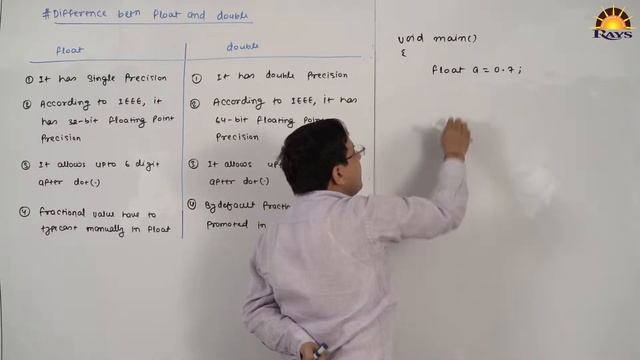 #Difference betn Float and double
float
① It has Single Precision
② According to IEEE, it
has 32-bit floating point
Precision
③ It allows upto 6 digit
after dot(.)
④ Fractional value have to
typecast manually in Float
double
① It has double Precision
② According to IEEE, it has
64-bit floating
Precision
③ It allows
after dot(.)
④ By default
Promoted in
void main()
{
float a = 0.7;
RAYS